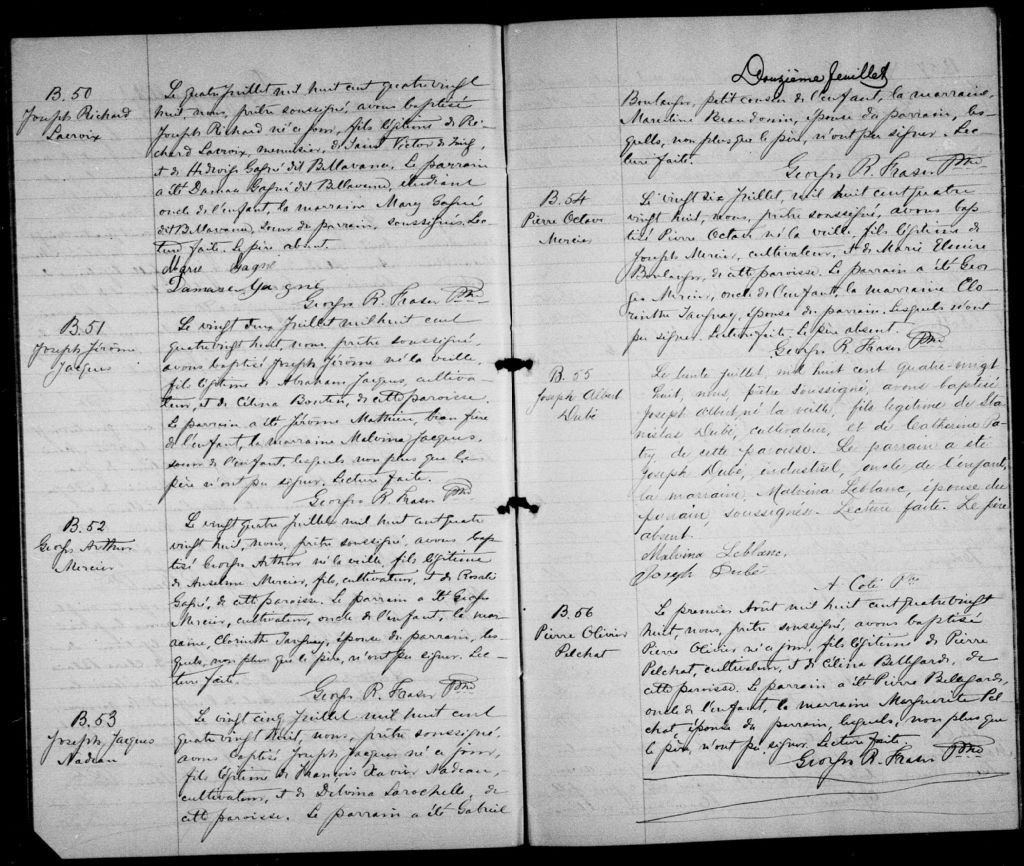 B.50
Joseph Richard
Lacroix
Le quatre Juillet mil huit cent quatre vingt
huit, nous, prêtre soussigné, avons baptisé
Joseph Richard né ce jour, fils légitime de Ri-
chard Lacroix, menuisier, de Saint Victor de Tring,
et de Hedwige Gagné dit Bellavance. Le parrain
a été Damase Gagné dit Bellavance, étudiant
oncle de l'enfant, la marraine Mary Gagné
dit Bellavance, soeur du parrain, soussignés. Lec-
ture faite. Le père absent.
Marie Gagné
Damase Gagné
Georges R. Fraser Ptre
B.51
Joseph Jérôme
Jacques
Le vingt deux Juillet mil huit cent
quatre vingt huit, nous, prêtre soussigné,
avons baptisé Joseph Jérôme né la veille,
fils légitime d'Abraham Jacques, cultiva-
teur, et de Célina Boutin, de cette paroisse.
Le parrain a été Jérôme Mathieu, beau frère
de l'enfant, la marraine Melvina Jacques,
soeur de l'enfant, lesquels non plus que le
père n'ont pu signer. Lecture faite.
Georges R. Fraser Ptre
B.52
Georges Arthur
Mercier
Le vingt quatre Juillet mil huit cent quatre
vingt huit, nous, prêtre soussigné, avons bap
tisé Georges Arthur né la veille, fils légitime
de Anselme Mercier, fils, cultivateur, et de Rosalie
Gagné, de cette paroisse. Le parrain a été George
Mercier, cultivateur, oncle de l'enfant, la mar-
raine, Clorinthe Tanguay, épouse du parrain, les-
quels, non plus que le père, n'ont pu signer. Lec-
ture faite.
Georges R. Fraser Ptre
B.53
Joseph Jacques
Nadeau
Le vingt cinq Juillet mil huit cent
quatre vingt huit, nous, prêtre soussigné,
avons baptisé Joseph Jacques né ce jour,
fils légitime de François Xavier Nadeau,
cultivateur, et de Delvina Larochelle, de
cette paroisse. Le parrain a été Gabriel
Douzième feuillet
Boulanger, petit cousin de l'enfant, la marraine,
Marceline Beaudouin, épouse du parrain, les-
quels, non plus que le père, n'ont pu signer. Lec-
ture faite.
Georges R. Fraser Ptre
B.54
Pierre Octave
Mercier
Le vingt six Juillet, mil huit cent quatre
vingt huit, nous, prêtre soussigné, avons bap
tisé Pierre Octave né la veille, fils légitime de
Joseph Mercier, cultivateur, et de Marie Elmire
Boulanger, de cette paroisse. Le parrain a été Geor-
ges Mercier, oncle de l'enfant, la marraine Clo-
rinthe Tanguay, épouse du parrain. Lesquels n'ont
pu signer. Lecture faite. Le père absent.
Georges R. Fraser Ptre
B.55
Joseph Albert
Dubé
Le trente juillet, mil huit cent quatre-vingt
huit, nous, prêtre soussigné, avons baptisé
Joseph Albert, né la veille, fils légitime de Sta
nislas Dubé, cultivateur, et de Catherine Pa-
try de cette paroisse. Le parrain a été
Joseph Dubé, industriel, oncle de l'enfant,
la marraine, Malvina Leblanc, épouse du
parrain, soussignés. Lecture faite. Le père
absent.
Malvina Leblanc,
Joseph Dubé
A Coté Ptre
B.56
Pierre Olivier
Pelchat
Le premier Août mil huit cent quatre vingt
huit, nous, prêtre soussigné, avons baptisé
Pierre Olivier né ce jour, fils légitime de Pierre
Pelchat, cultivateur, et de Célina Bellegarde, de
cette paroisse. Le parrain a été Pierre Bellegarde,
oncle de l'enfant, la marraine Marguerite Pel
chat, épouse du parrain, lesquels, non plus que
le père, n'ont pu signer. Lecture faite.
Georges R. Fraser Ptre